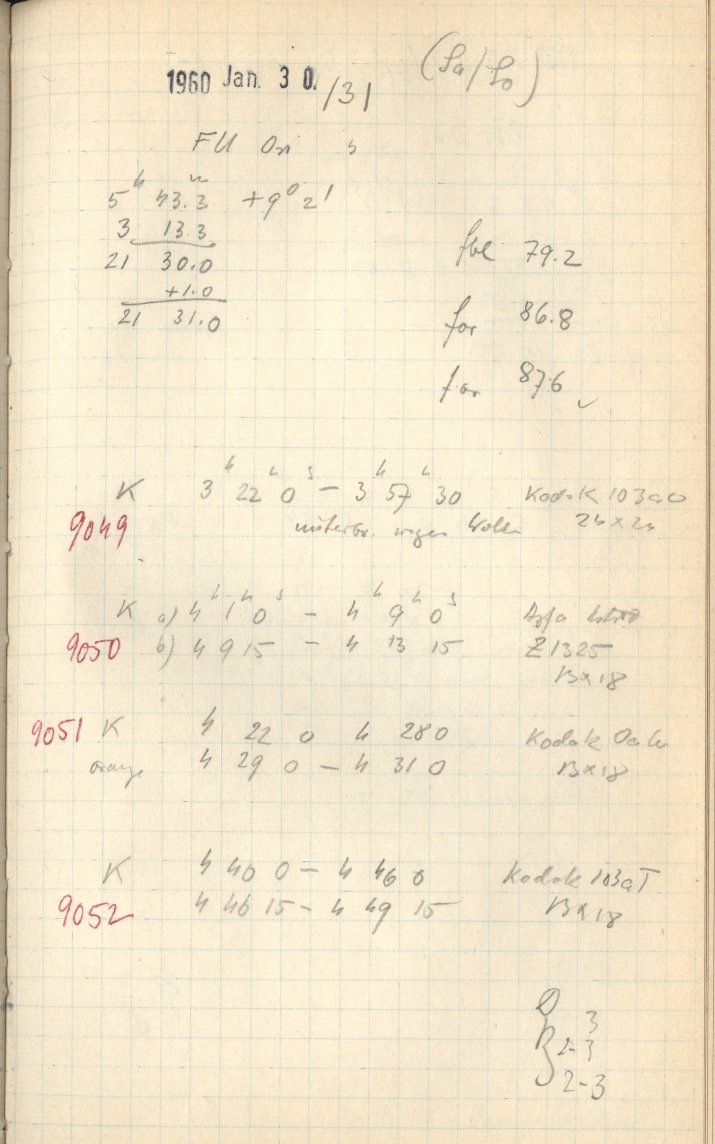 1960 Jan. 30./31 (Sa/So)
FU Ori
5h 43.3m +9° 2'
3 13.3
21 30.0
+1.0
21 31.0
79.2
for 86.8
for 87.6
K 3h 22m 0s – 3h 57m 30 Kodak 103aO
9049 unterbr. wegen Wolken 24×24
K a) 4h 1m 0s – 4h 9m 0s Agfa Astro
9050 b) 4 9 15 – 4 13 15 Z1325
13×18
9051 K 4 22 0 4 28 0 Kodak
orange 4 29 0 – 4 31 0 13×18
K 4 40 0 – 4 46 0 Kodak 103aT
9052 4 46 15 – 4 49 15 13×18
3
2-3
2-3